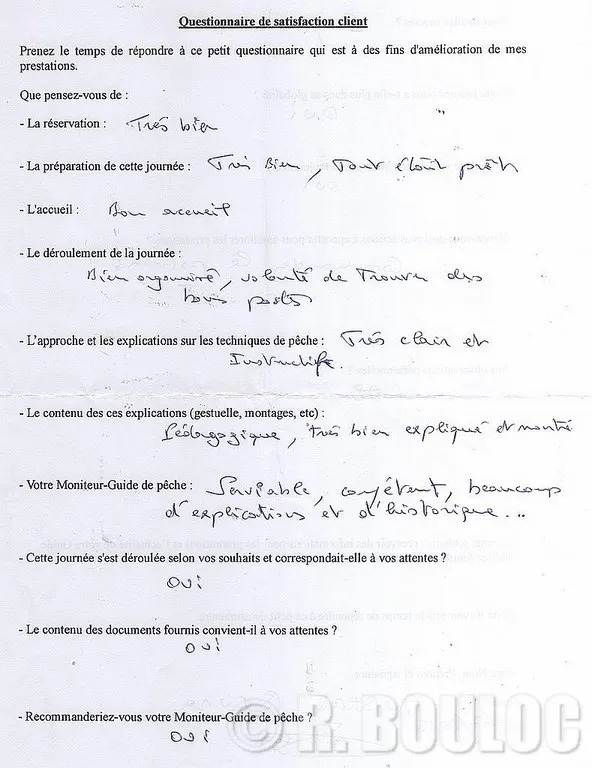 Questionnaire de satisfaction client
Prenez le temps de répondre à ce petit questionnaire qui est à des fins d'amélioration de mes
prestations.
Que pensez-vous de :
- La réservation : Très bien
- La préparation de cette journée : Très Bien, Tout était prêt
- L'accueil : Bon accueil
- Le déroulement de la journée :
Bien organisé, volonté de Trouver des
bons postes
- L'approche et les explications sur les techniques de pêche : Très clair et
Instructif.
- Le contenu des ces explications (gestuelle, montages, etc) :
Pédagogique, très bien expliqué et montré
- Votre Moniteur-Guide de pêche : Serviable, compétent, beaucoup
d'explications et d'historique...
- Cette journée s'est déroulée selon vos souhaits et correspondait-elle à vos attentes ?
OUi
- Le contenu des documents fournis convient-il à vos attentes ?
OUi
- Recommanderiez-vous votre Moniteur-Guide de pêche ?
OUi
© R. BOULOC